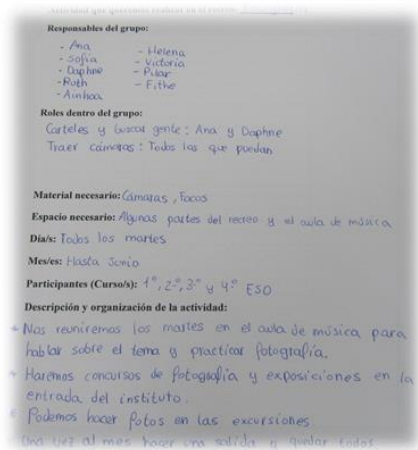 Actividad que queremos realizar en el recreo:
Responsables del grupo:
- Ana
- Sofía
- Daphne
- Ruth
- Ainhoa
- Helena
- Victoria
- Pilar
- Fithe
Roles dentro del grupo:
Carteles y buscar gente: Ana y Daphne
Traer cámaras: Todos los que puedan
Material necesario: Cámaras, Focos
Espacio necesario: Algunas partes del recreo y el aula de música
Día/s: Todos los martes
Mes/es: Hasta Junio
Participantes (Curso/s): 1º, 2º, 3º y 4º ESO
Descripción y organización de la actividad:
* Nos reuniremos los martes en el aula de música para
hablar sobre el tema y practicar fotografía.
* Haremos concursos de fotografía y exposiciones en la
entrada del instituto.
* Podemos hacer fotos en las excursiones
Una vez al mes hacer una salida y quedar todos